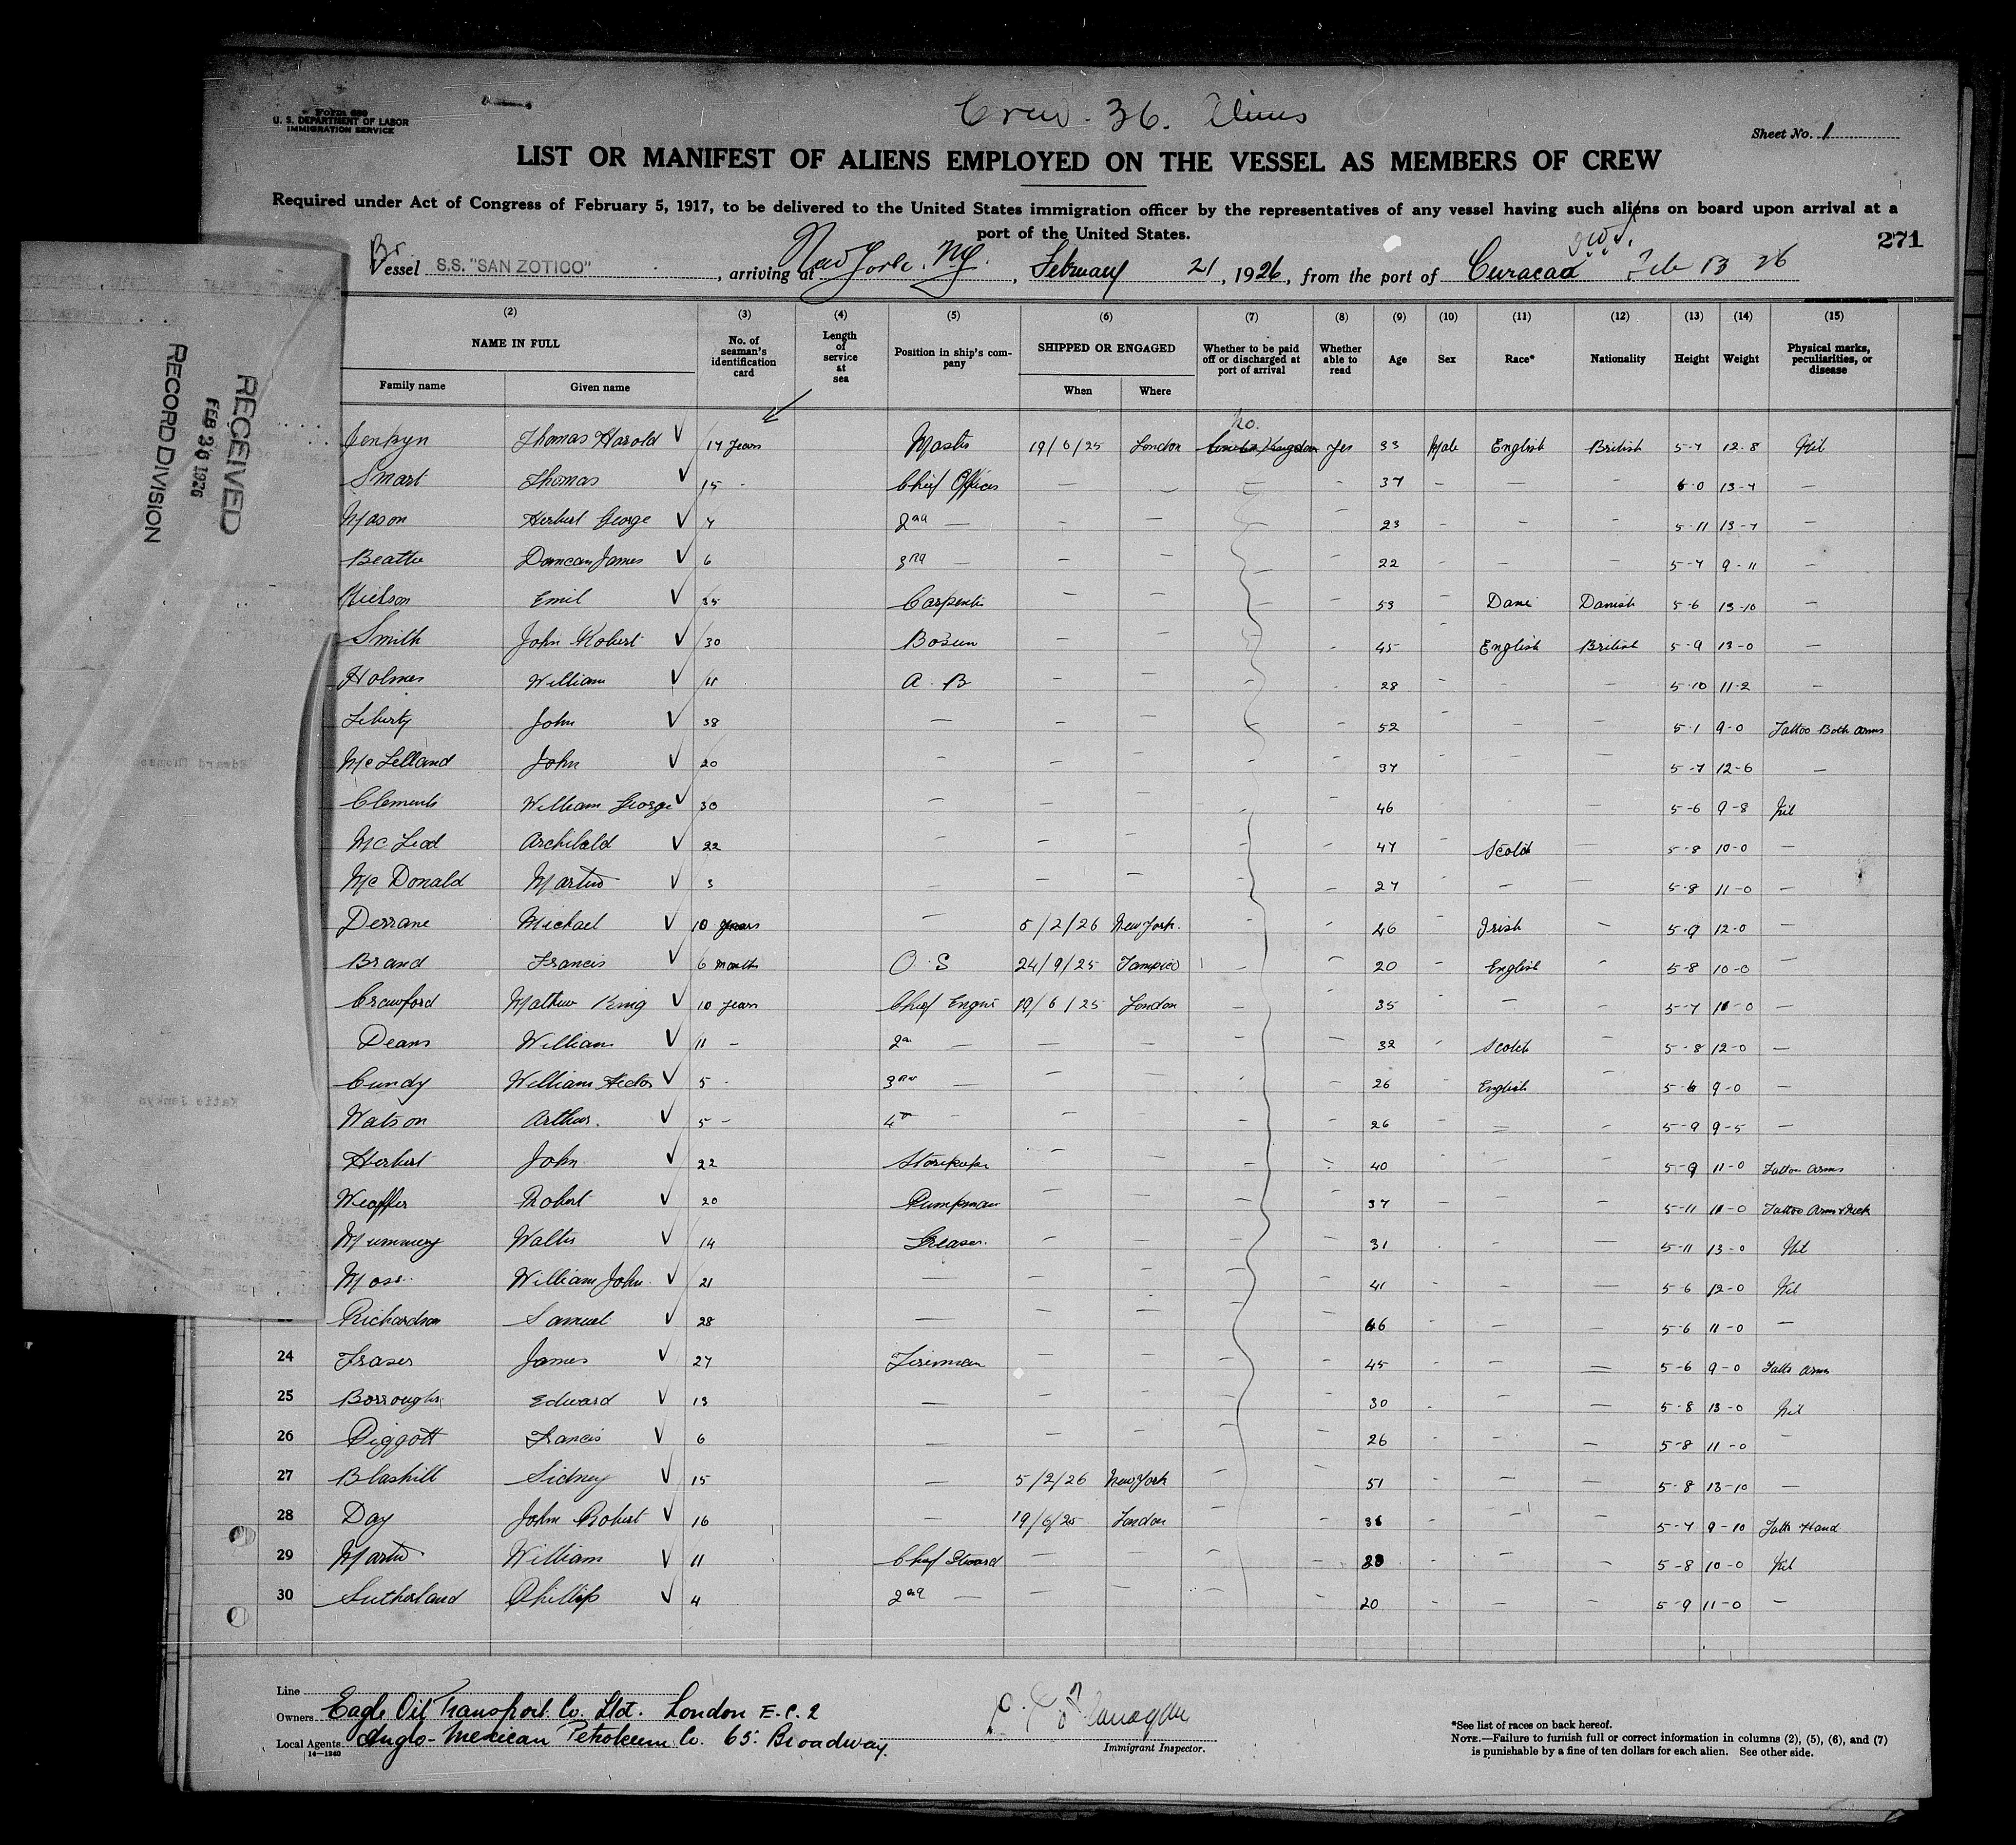 Form 680
U. S. DEPARTMENT OF LABOR
IMMIGRATION SERVICE
Crew. 36. Aliens
Sheet No. 1
LIST OR MANIFEST OF ALIENS EMPLOYED ON THE VESSEL AS MEMBERS OF CREW
Required under Act of Congress of February 5, 1917, to be delivered to the United States immigration officer by the representatives of any vessel having such aliens on board upon arrival at a
port of the United States.
271
Br.
Vessel S.S. "SAN ZOTICO" , arriving at New York. NY. , February 21 , 1926 , from the port of Curacao Feb 13 26
RECEIVED
FEB 26 1926
RECORD DIVISION
(2) (3) (4) (5) (6) (7) (8) (9) (10) (11) (12) (13) (14) (15)
NAME IN FULL No. of seaman's identification card Length of service at sea Position in ship's company SHIPPED OR ENGAGED Whether to be paid off or discharged at port of arrival Whether able to read Age Sex Race* Nationality Height Weight Physical marks, peculiarities, or disease
Family name Given name When Where
No.
Jenkyn Thomas Harold √ 17 years Master 19/6/25 London United Kingdom Yes 33 Male English British 5-7 12-8 Nil
Smart Thomas √ 15 - Chief Officer — — — - 37 - — - 6-0 13-7 —
Mason Herbert George √ 7 2nd — — — - - 23 - - - 5-11 13-7 —
Beattie Duncan James √ 6 3rd — — — - - 22 - - - 5-7 9-11 —
Nielson Emil √ 35 Carpenter — — — - 53 - Dane Danish 5-6 13-10 —
Smith John Robert √ 30 Bosun — — - - 45 - English British 5-9 13-0 —
Holmes William √ 11 A.B — — - - 28 - - - 5-10 11-2 —
Liberty John √ 38 — — — - - 52 - - - 5-1 9-0 Tattoo Both Arms
McLelland John √ 20 — — - - 37 - - - 5-7 12-6 —
Clements William George √ 30 — — — - - 46 - - - 5-6 9-8 Nil
McLeod Archibald √ 22 - — — - - 47 - Scotch — 5-8 10-0 —
McDonald Martin √ 3 — — — - - 27 - — — 5-8 11-0 —
Derrane Michael √ 10 years — 5/2/26 New York. - - 46 - Irish - 5-9 12-0 —
Brand Francis √ 6 months O.S 24/9/25 Tampico - - 20 - English - 5-8 10-0 —
Crawford Mathew King √ 10 years Chief Engnr 19/6/25 London — - 35 - — - 5-7 —
Deans William √ 11 - 2nd — — — — - 32 - Scotch - 5-8 12-0 —
Cundy William √ 5 - 3rd — — — - - 26 - English - 5-6 9-0 —
Watson Arthur. √ 5 - 4th - — — — - 26 - — - 5-9 9-5 —
Herbert John √ 22 Storekeeper — — - - 40 - - - 5-9 11-0 Tattoo Arms
Robert √ 20 Pumpman — — — - 37 - - - 5-11 Tattoo Arms & Neck
Mummery Walter √ 14 Greaser. — — - - 31 - - — 5-11 13-0 Nil
Moss William John √ 21 — — — — - 41 - - — 5-6 12-0 Nil
Richardson Samuel √ 28 — — — — - 46 - - — 5-6 11-0 —
24 Fraser James √ 27 Fireman — — — - 45 - - — 5-6 9-0 Tatto Arms
25 Borroughs Edward √ 13 — — — — - 30 - - — 5-8 13-0 Nil
26 Piggott Francis √ 6 — — — — - 26 - - — 5-8 11-0 -
27 Blaskill Sidney √ 15 — 5/2/26 New York — - 51 - - — 5-8 13-10 —
28 Day John Robert √ 16 — 19/6/25 London - - 36 - - - 5-7 9-10 Tatto Hand
29 Martin William √ 11 Chief Steward — — - - - - - 5-8 10-0 Nil
30 Sutherland Phillip √ 4 2nd — — — - - 20 - - - 5-9 11-0 —
Line
Owners Eagle Oil Transport. Co. Ltd. London E.C.2
Local Agents Anglo-Mexican Petroleum Co. 65. Broadway.
14—1240
Immigrant Inspector.
*See list of races on back hereof.
NOTE.—Failure to furnish full or correct information in columns (2), (5), (6), and (7)
is punishable by a fine of ten dollars for each alien. See other side.